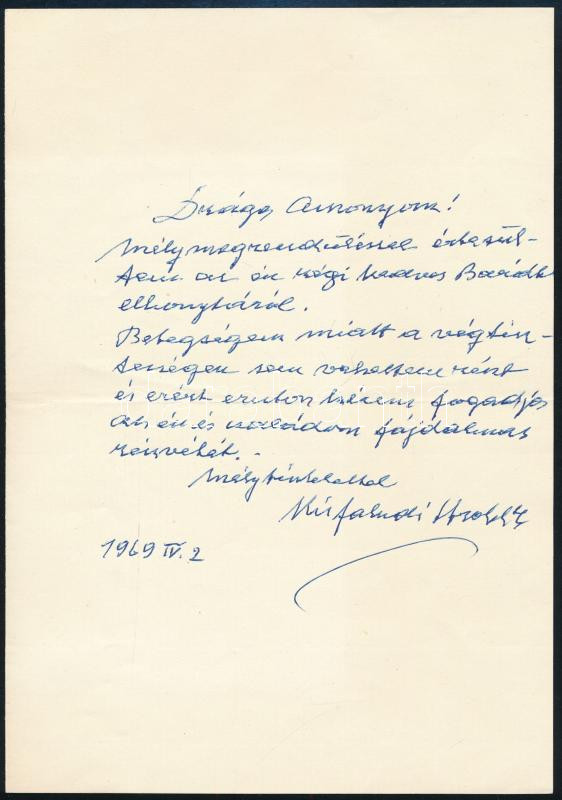 Drága Asszonyom!
Mély megrendüléssel értesül-
tem az én régi kedves Barátom
elhunytáról.
Betegségem miatt a végtisz-
tességen sem vehettem részt
és ezért ezúton kérem fogadja
az én és családom fájdalmas
részvétét. -
Mély tisztelettel
Kisfaludi Strobl Zs
1969 IV. 2